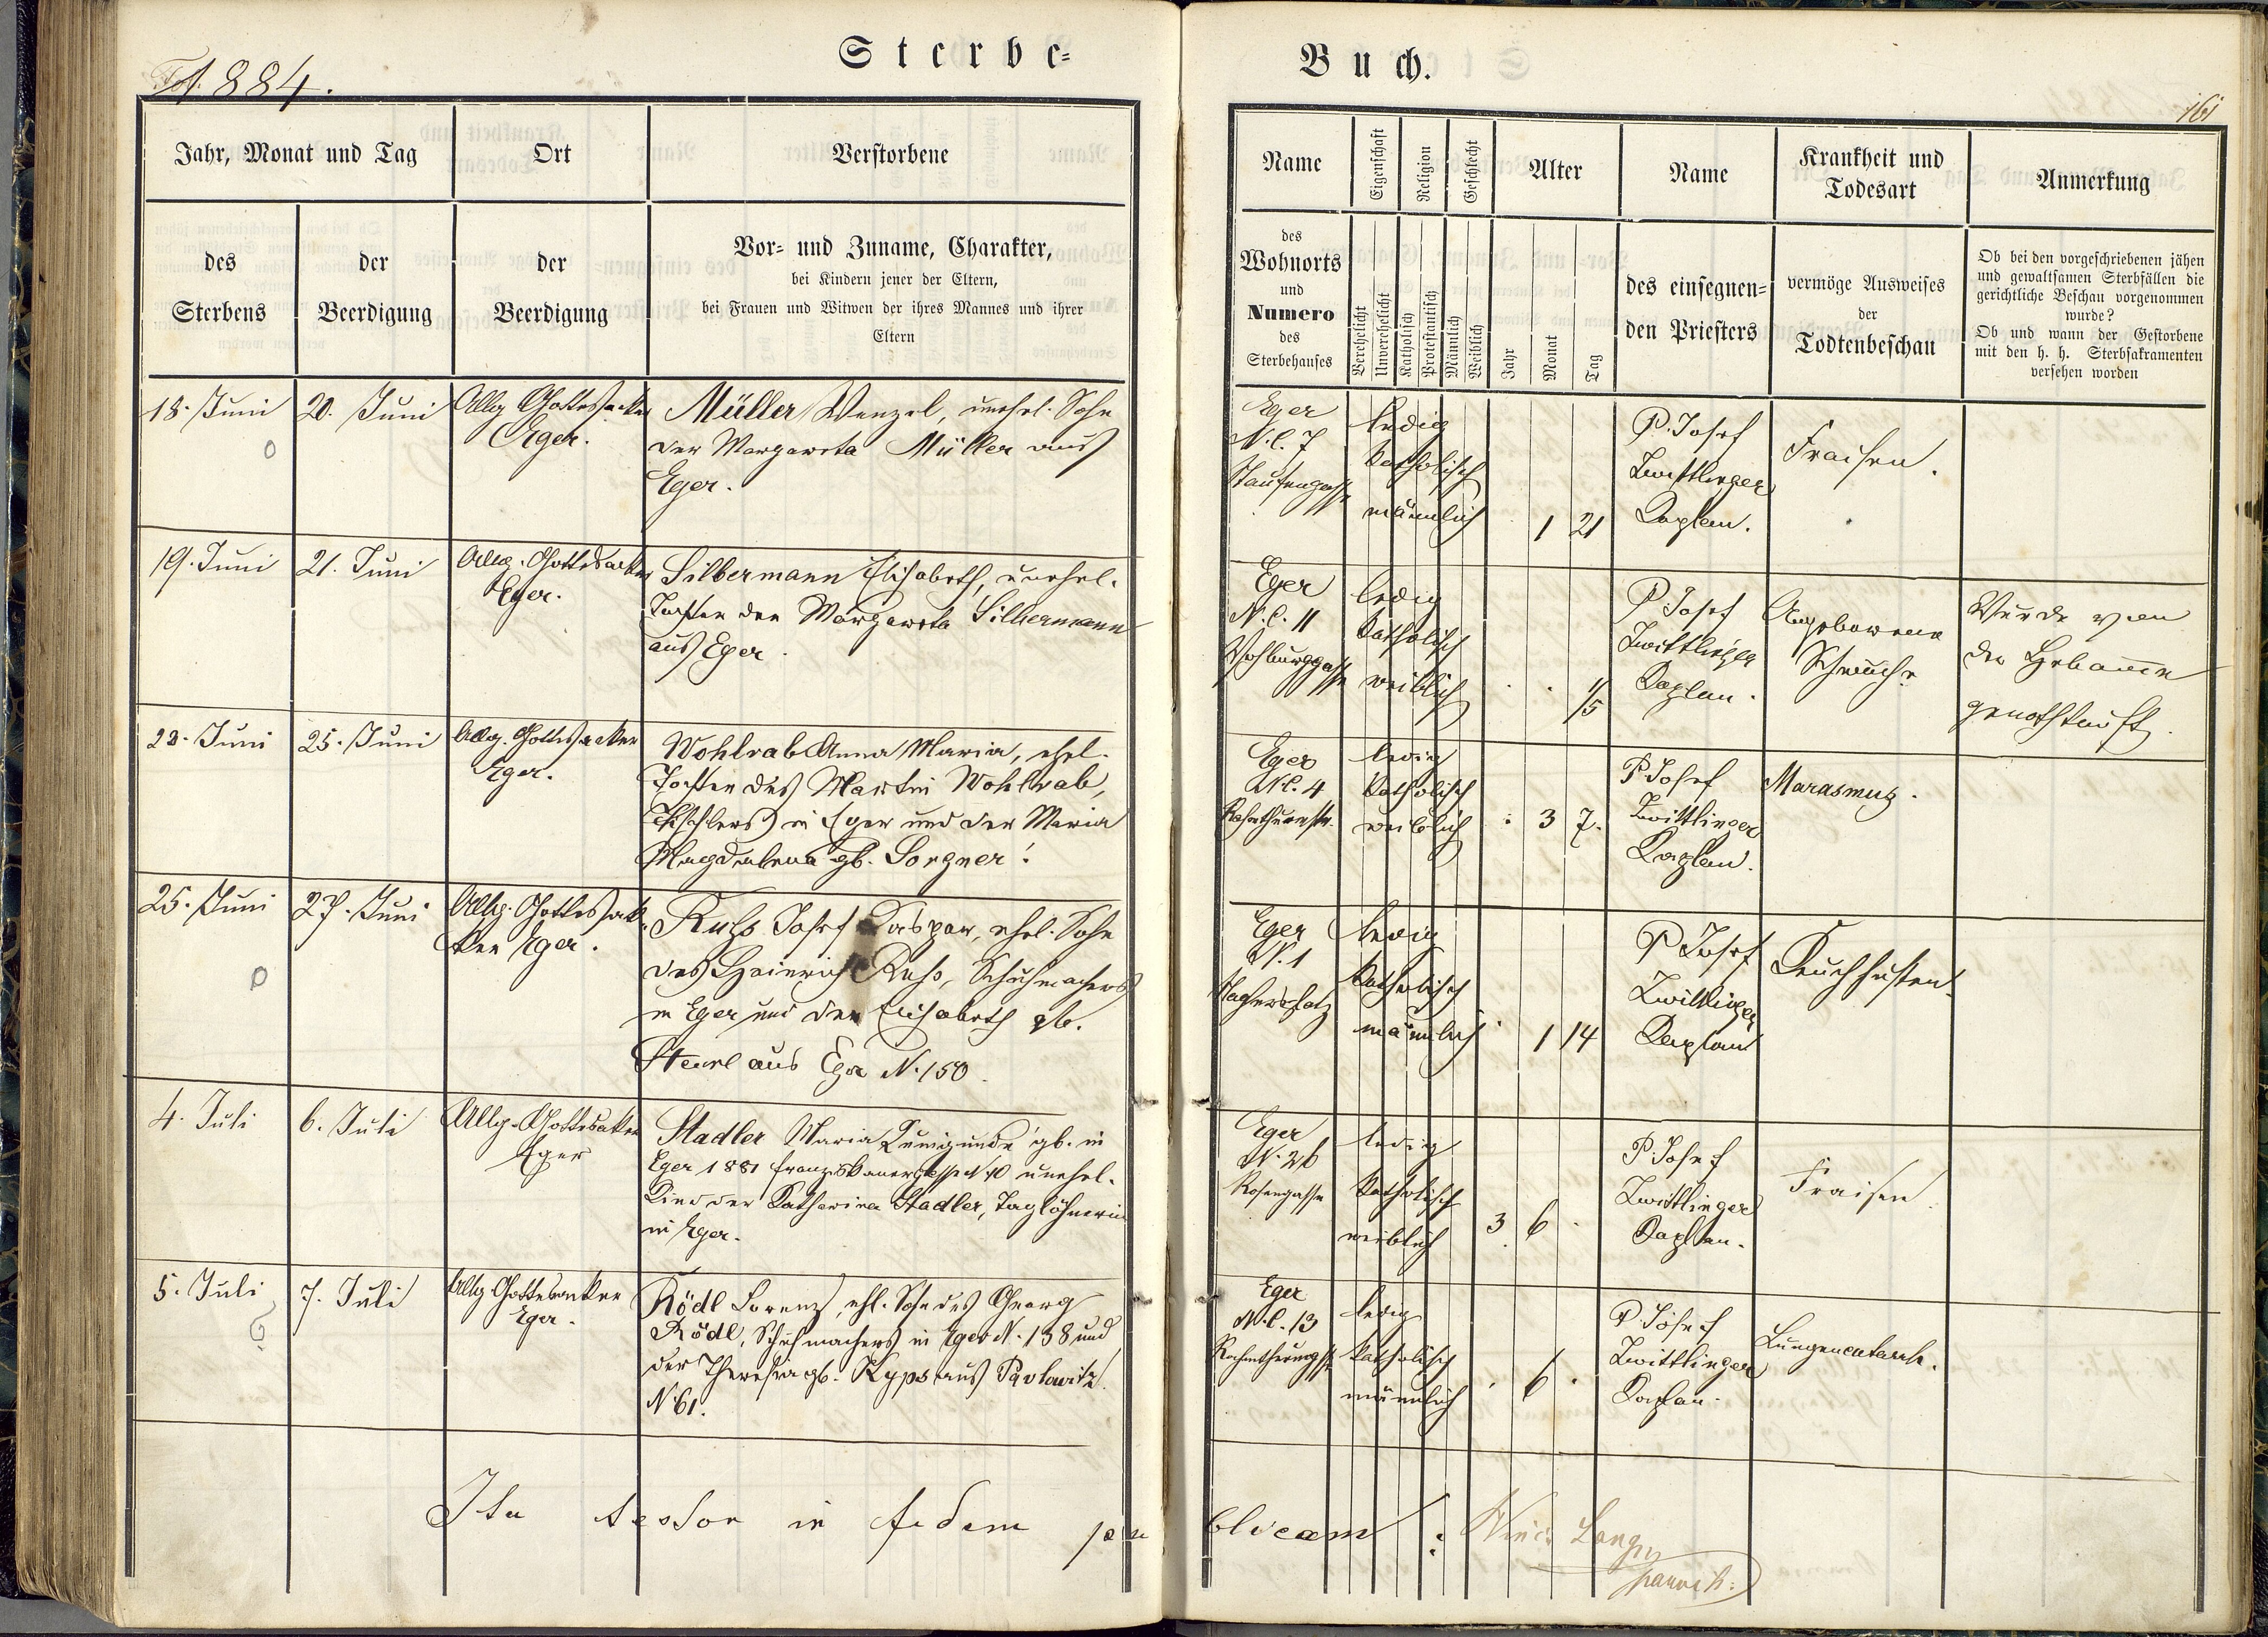 Fol. 884.
Sterbe=
Jahr, Monat und Tag
Ort
Verstorbene
des
Sterbens
der
Beerdigung
der
Beerdigung
Vor- und Zuname, Charakter,
bei Kindern jener der Eltern,
bei Frauen und Witwen der ihres Mannes und ihrer
Eltern
18. Juni
20. Juni
Allg Gottesacker
Eger.
Müller Wenzel, unehel. Sohn
der Margareta Müller aus
Eger.
19. Juni
21. Juni
Allg. Gottesacker
Eger.
Silbermann Elisabeth, unehel.
Tochter der Margareta Silbermann
aus Eger.
23. Juni
25. Juni
Allg. Gottesacker
Eger.
Wohlrab Anna Maria, ehel.
Tochter des Martin Wohlrab,
Tischlers in Eger und der Maria
Magdalena gb. Sorgner.
25. Juni
27. Juni
Allg. Gottesack
ker Eger.
Russ Josef Kaspar, ehel. Sohn
des Heinrich Russ, Schuhmachers
in Eger und der Elisabeth gb.
aus Eger N. 150.
4. Juli
6. Juli
Allg. Gottesaker
Eger
Stadler Maria Kunigunde gb. in
Eger 1881 Franziskanergasse N 10 unehel.
Kind der Katharina Stadler, Taglöhnerin
in Eger.
5. Juli
7. Juli
Allg Gottesacker
Eger.
Rödl Lorenz, ehl. Sohn des Georg
Rödl, Schuhmachers in Eger N. 138 und
der Theresia gb. Kyps aus Pavlowitz
N. 61.
Ita testor in fidem pu
Buch.
161
Name
Eigenschaft
Religion
Geschlecht
Alter
Name
Krankheit und
Todesart
Anmerkung
des
Wohnorts
und
Numero
des
Sterbehauses
Verehelicht
Unverehelicht
Katholisch
Protestantisch
Männlich
Weiblich
Jahr
Monat
Tag
des einsegnen=
den Priesters
vermöge Ausweises
der
Todtenbeschau
Ob bei den vorgeschriebenen jähen
und gewaltsamen Sterbfällen die
gerichtliche Beschau vorgenommen
wurde?
Ob und wann der Gestorbene
mit den h. h. Sterbsakramenten
versehen worden
Eger
N. C. 7
Staufengasse
ledig
Katholisch
männlich
1 21
P. Josef
Zwittlinger
Kaplan.
Fraisen.
Eger
N. C. 11
Vohburggasse
ledig
Katholisch
weiblich
1/5
P Josef
Zwittlinger
Kaplan.
Angeborene
Schwäche
Wurde von
der Hebamme
genothtauft.
Eger
N C. 4
Rahmthurmstr.
ledig
Katholisch
weiblich
3 7.
P Josef
Zwittlinger
Kaplan.
Marasmus.
Eger
N. 1
ledig
Katholisch
männlich
1 14
P Josef
Zwittlinger
Kaplan
Keuchhusten.
Eger
N. 26
Rosengasse
ledig
Katholisch
weiblich
3 6
P. Josef
Zwittlinger
Kaplan.
Fraisen
Eger
N. C. 13
ledig
Katholisch
männlich
6
P. Josef
Zwittlinger
Kaplan.
Lungencatarrh.
blicam: